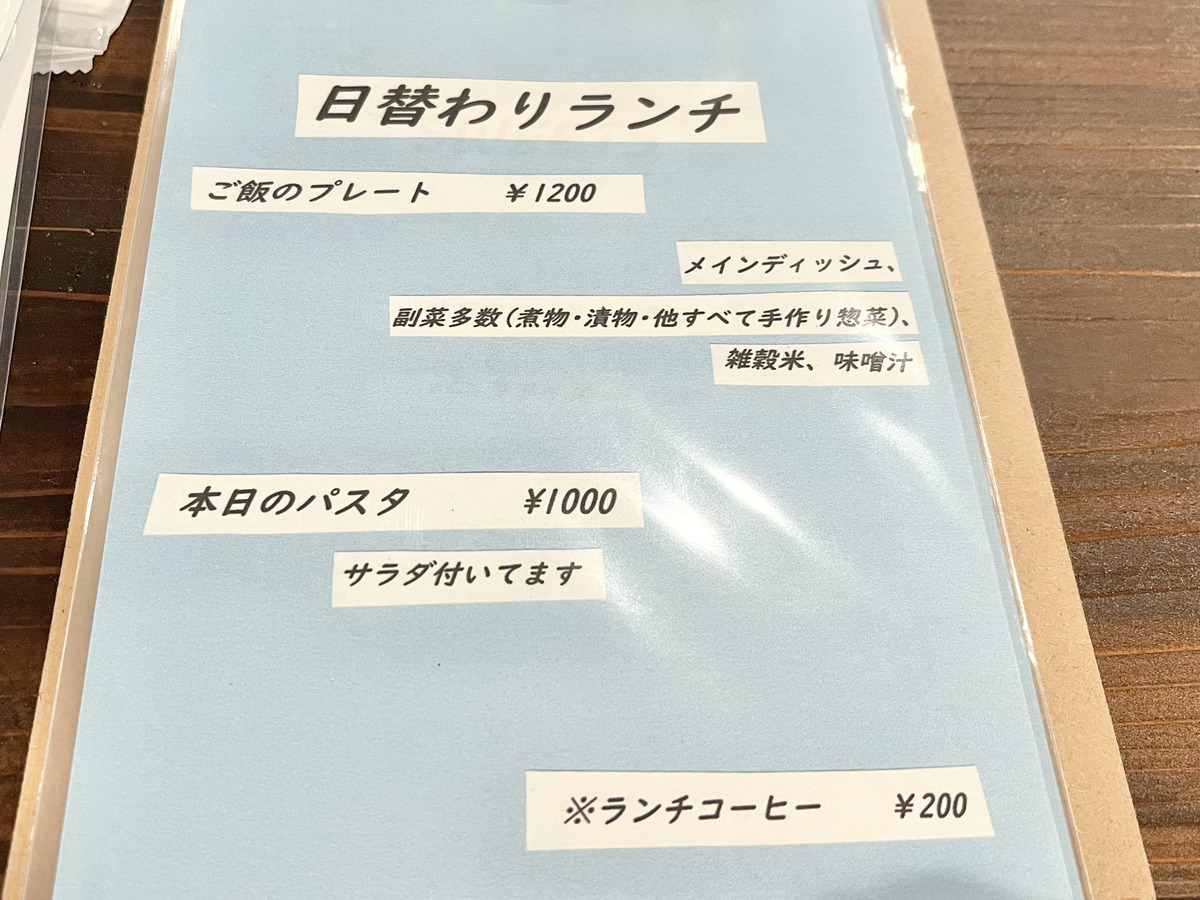 日替わりランチ
ご飯のプレート ￥1200
メインディッシュ、
副菜多数(煮物・漬物・他すべて手作り惣菜)、
雑穀米、味噌汁
本日のパスタ ¥1000
サラダ付いてます
※ランチコーヒー ￥200